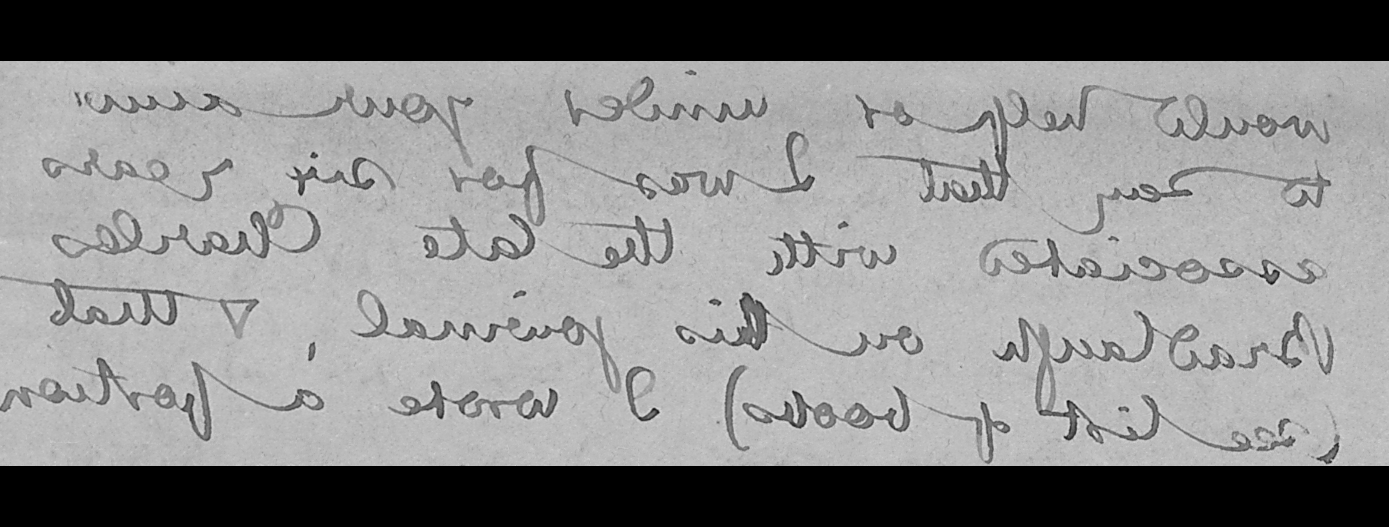 would help or your
to say that I was for six years
associated with the late Charles
Bradlaugh on his journal, & that
(see list of books) I wrote a portion